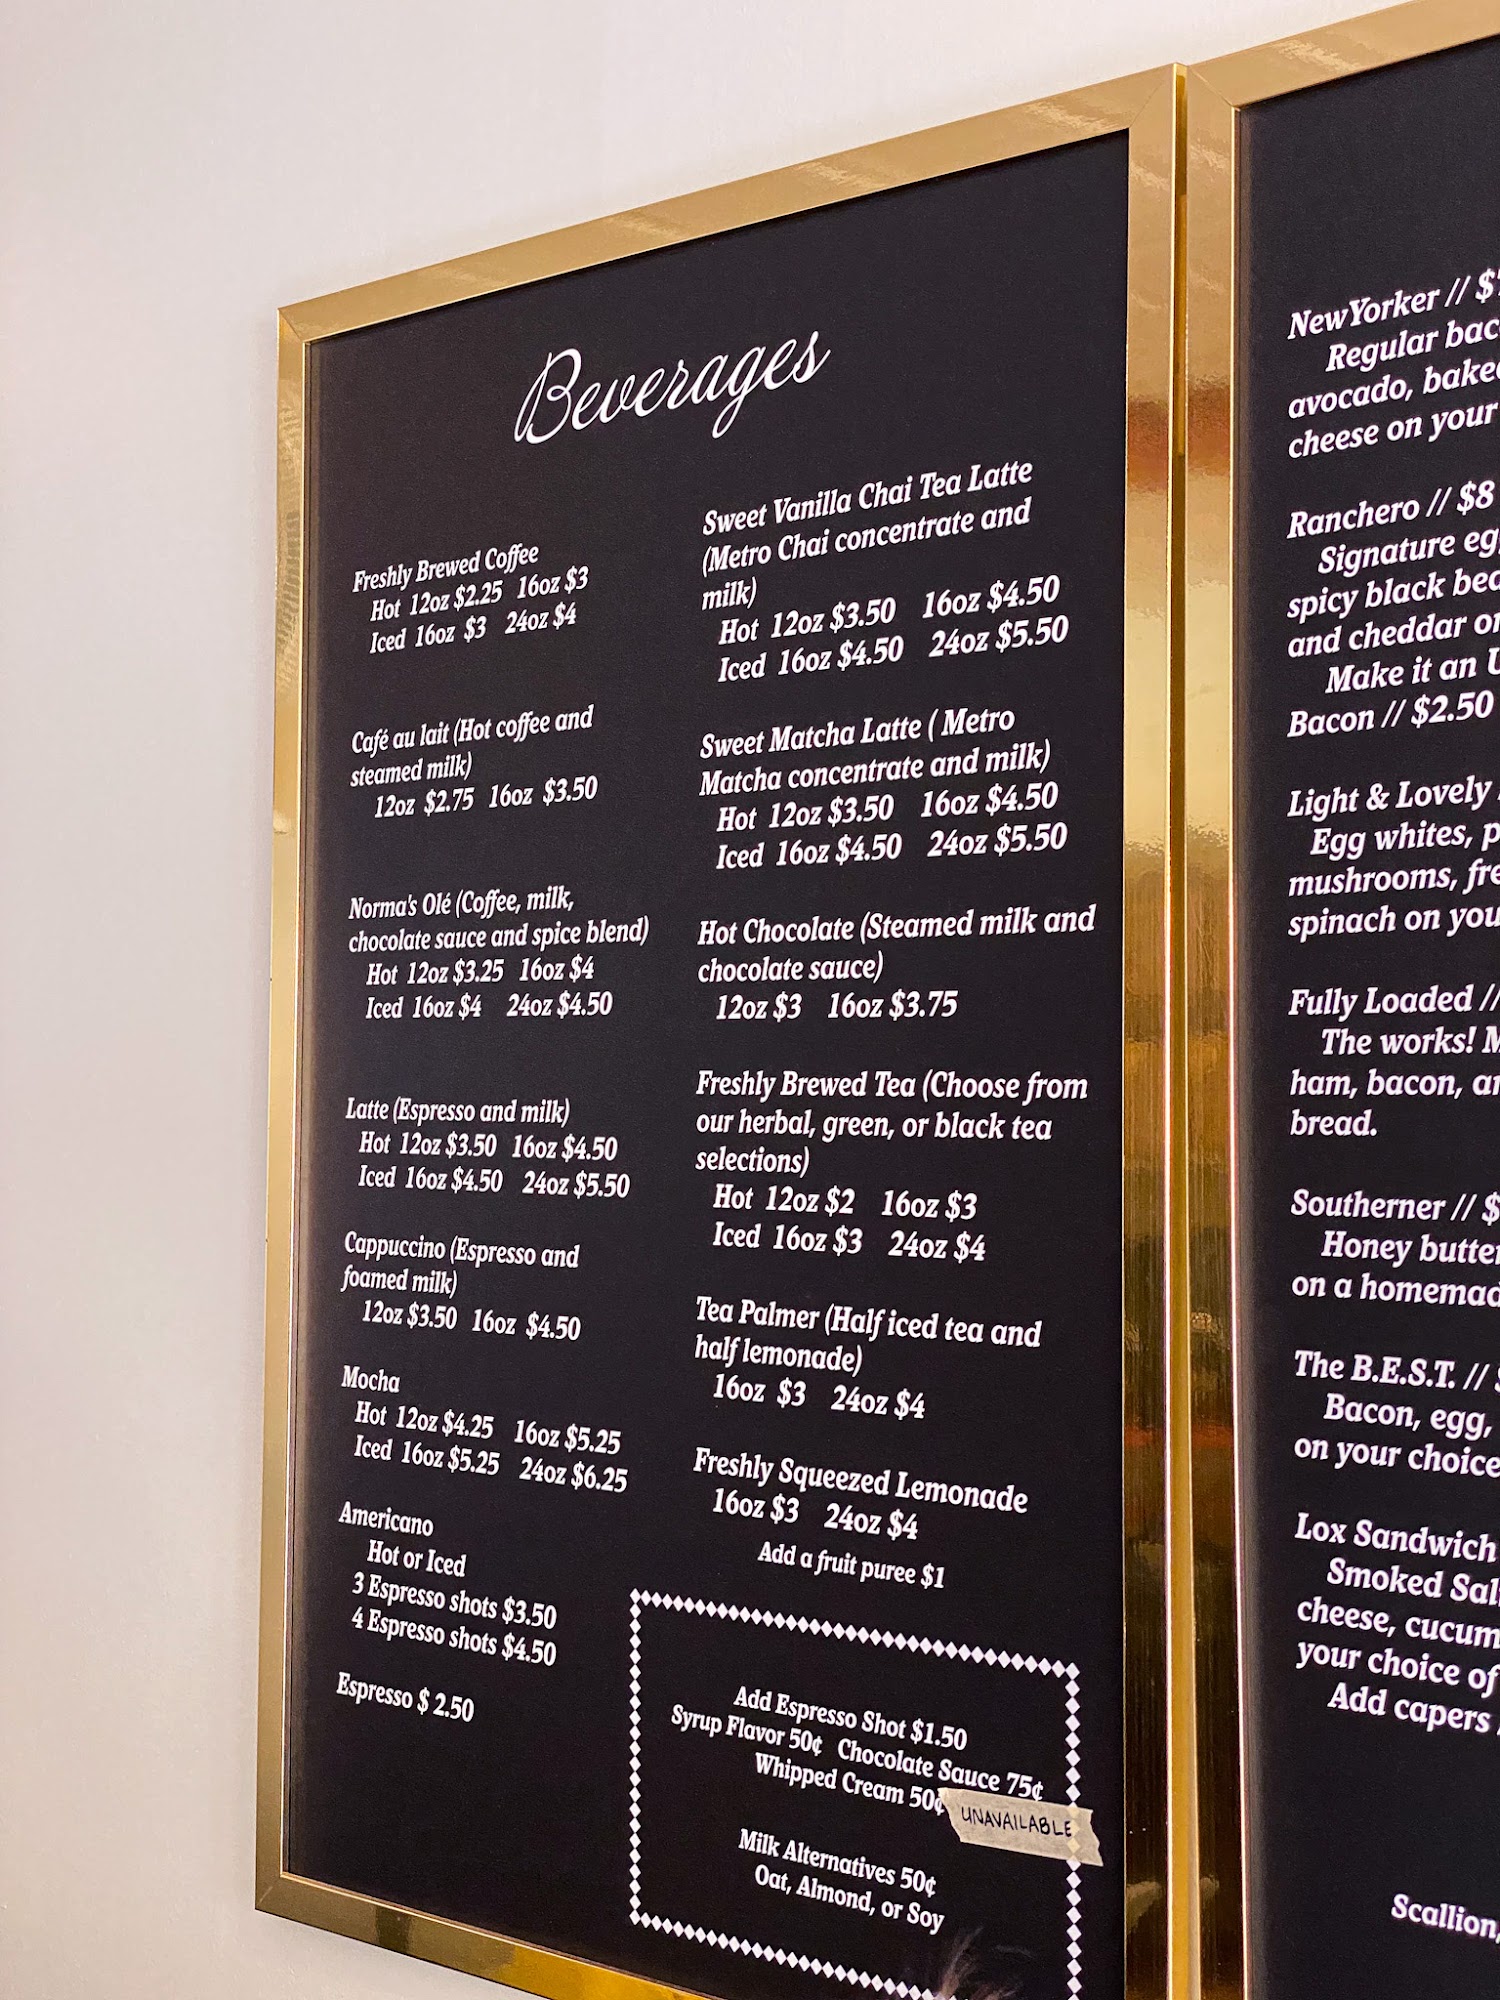 Beverages
Freshly Brewed Coffee
Hot 12oz $2.25 16oz $3
Iced 16oz $3 24oz $4
Café au lait (Hot coffee and
steamed milk)
12oz $2.75 16oz $3.50
Norma's Olé (Coffee, milk,
chocolate sauce and spice blend)
Hot 12oz $3.25 16oz $4
Iced 16oz $4 24oz $4.50
Latte (Espresso and milk)
Hot 12oz $3.50 16oz $4.50
Iced 16oz $4.50 24oz $5.50
Cappuccino (Espresso and
foamed milk)
12oz $3.50 16oz $4.50
Mocha
Hot 12oz $4.25 16oz $5.25
Iced 16oz $5.25 24oz $6.25
Americano
Hot or Iced
3 Espresso shots $3.50
4 Espresso shots $4.50
Espresso $ 2.50
Sweet Vanilla Chai Tea Latte
(Metro Chai concentrate and
milk)
Hot 12oz $3.50 16oz $4.50
Iced 16oz $4.50 24oz $5.50
Sweet Matcha Latte ( Metro
Matcha concentrate and milk)
Hot 12oz $3.50 16oz $4.50
Iced 16oz $4.50 24oz $5.50
Hot Chocolate (Steamed milk and
chocolate sauce)
12oz $3 16oz $3.75
Freshly Brewed Tea (Choose from
our herbal, green, or black tea
selections)
Hot 12oz $2 16oz $3
Iced 16oz $3 24oz $4
Tea Palmer (Half iced tea and
half lemonade)
16oz $3 24oz $4
Freshly Squeezed Lemonade
16oz $3 24oz $4
Add a fruit puree $1
Add Espresso Shot $1.50
Syrup Flavor 50¢ Chocolate Sauce 75¢
Whipped Cream 50¢ UNAVAILABLE
Milk Alternatives 50¢
Oat, Almond, or Soy
NewYorker // $
Regular bac
avocado, bake
cheese on your
Ranchero // $8
Signature eg
spicy black bea
and cheddar o
Make it an U
Bacon // $2.50
Light & Lovely
Egg whites, p
mushrooms, fre
spinach on you
Fully Loaded //
The works! M
ham, bacon, a
bread.
Southerner // $
Honey butte
on a homemad
The B.E.S.T. //
Bacon, egg,
on your choice
Lox Sandwich
Smoked Sal
cheese, cucum
your choice of
Add capers
Scallion,